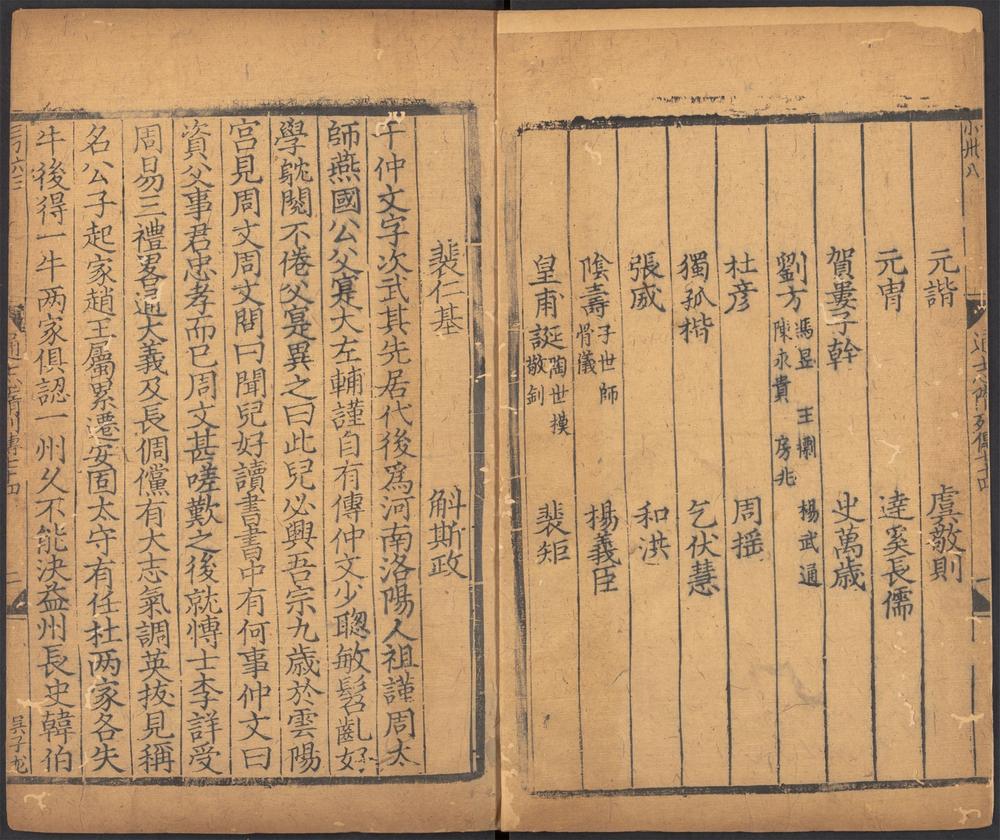 元諧 虞敬則
元冑 逹奚長儒
賀婁子幹 史萬歳
劉方 馮昱 王㯹 楊武通
陳永貴 房兆
杜彦 周揺
獨孤楷 乞伏慧
張威 和洪
隂壽 子世師 骨儀 楊義臣
皇甫誕 陶世模 敬釗 裴矩
裴仁基 斛斯政
于仲文字次武其先居代後爲河南洛陽人祖謹周太
師燕國公父寔大左輔謹自有傳仲文少聦敏髫齓好
學躭閱不倦父寔異之曰此兒必興吾宗九歳於雲陽
宫見周文周文問曰聞兒好讀書書中有何事仲文曰
資父事君忠孝而已周文甚嗟歎之後就愽士李詳受
周易三禮畧通大義及長倜儻有大志氣調英拔見稱
名公子起家趙王屬累遷安固太守有任杜两家各失
牛後得一牛两家俱認一州久不能決益州長史韓伯